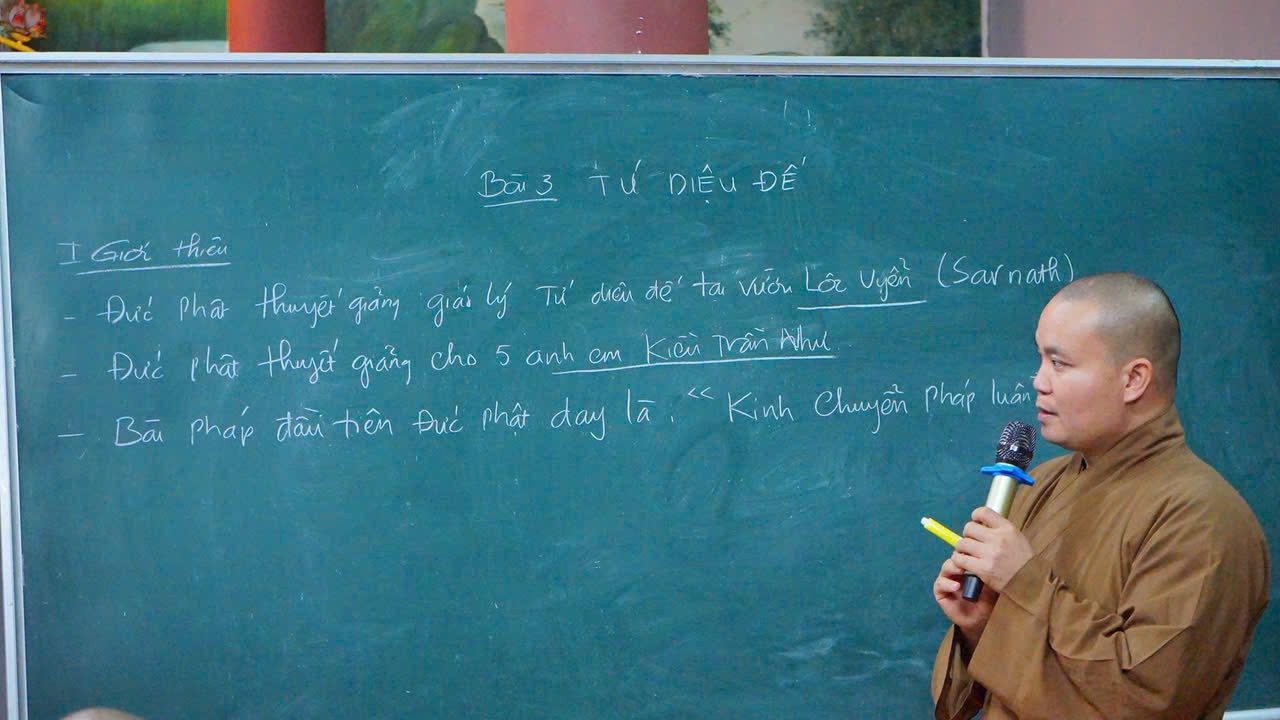 Bài 3 TỨ DIỆU ĐẾ
I Giới thiệu
- Đức Phật thuyết giảng giáo lý Tứ diệu đế tại vườn Lộc Uyển (Sarnath)
- Đức phật thuyết giảng cho 5 anh em Kiều Trần Như
- Bài pháp đầu tiên Đức phật dạy là. " Kinh Chuyển pháp luân